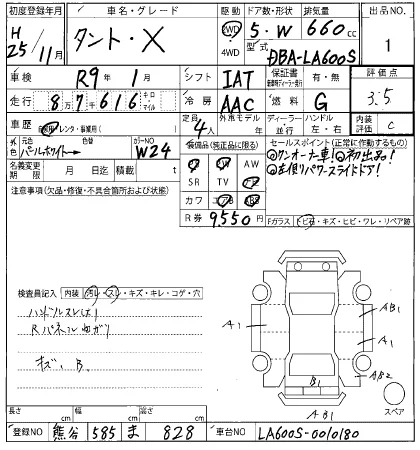 初度登録年月 車名・グレード 駆動 ドア数・形状 排気量 出品NO.
H 25/11月 タント・X 2WD ・4WD 5・W 660cc 1
型式 DBA-LA600S
車検 R9年1月 シフト IAT 保証書 有・無 評価点
走行 87616 キロ マイル 冷房 AAC 燃料 G 3.5
車歴 自家用・レンタ・事業用( ) 定員 4人 外車モデル 年 ディーラー・並行 ハンドル 左・右 内装評価 C
外色 元色 パールホワイト 色替 カラーNO W24 装備品(純正品に限る) セールスポイント(正常に作動するもの)
◎ワンオーナー車!◎初出品!
◎左側パワースライドドア!
名義変更期限 月 日迄 積載 t
PS PW AW
SR TV ナビ
カワ エアB ABS
R券 9,550円
注意事項(欠品・修復・不具合箇所および状態)
Fガラス トビ石・キズ・ヒビ・ワレ・リペア跡
検査員記入 内装 汚レ・スレ・キズ・キレ・コゲ・穴
ハンドルスレ
Rパネルゆがり
キズ、B.
A1
AB1
A1
AB2
B1
AB1
スペア
長さ cm 幅 cm 高さ cm
登録NO 熊谷 585 ま 828 車台NO LA600S-0010180